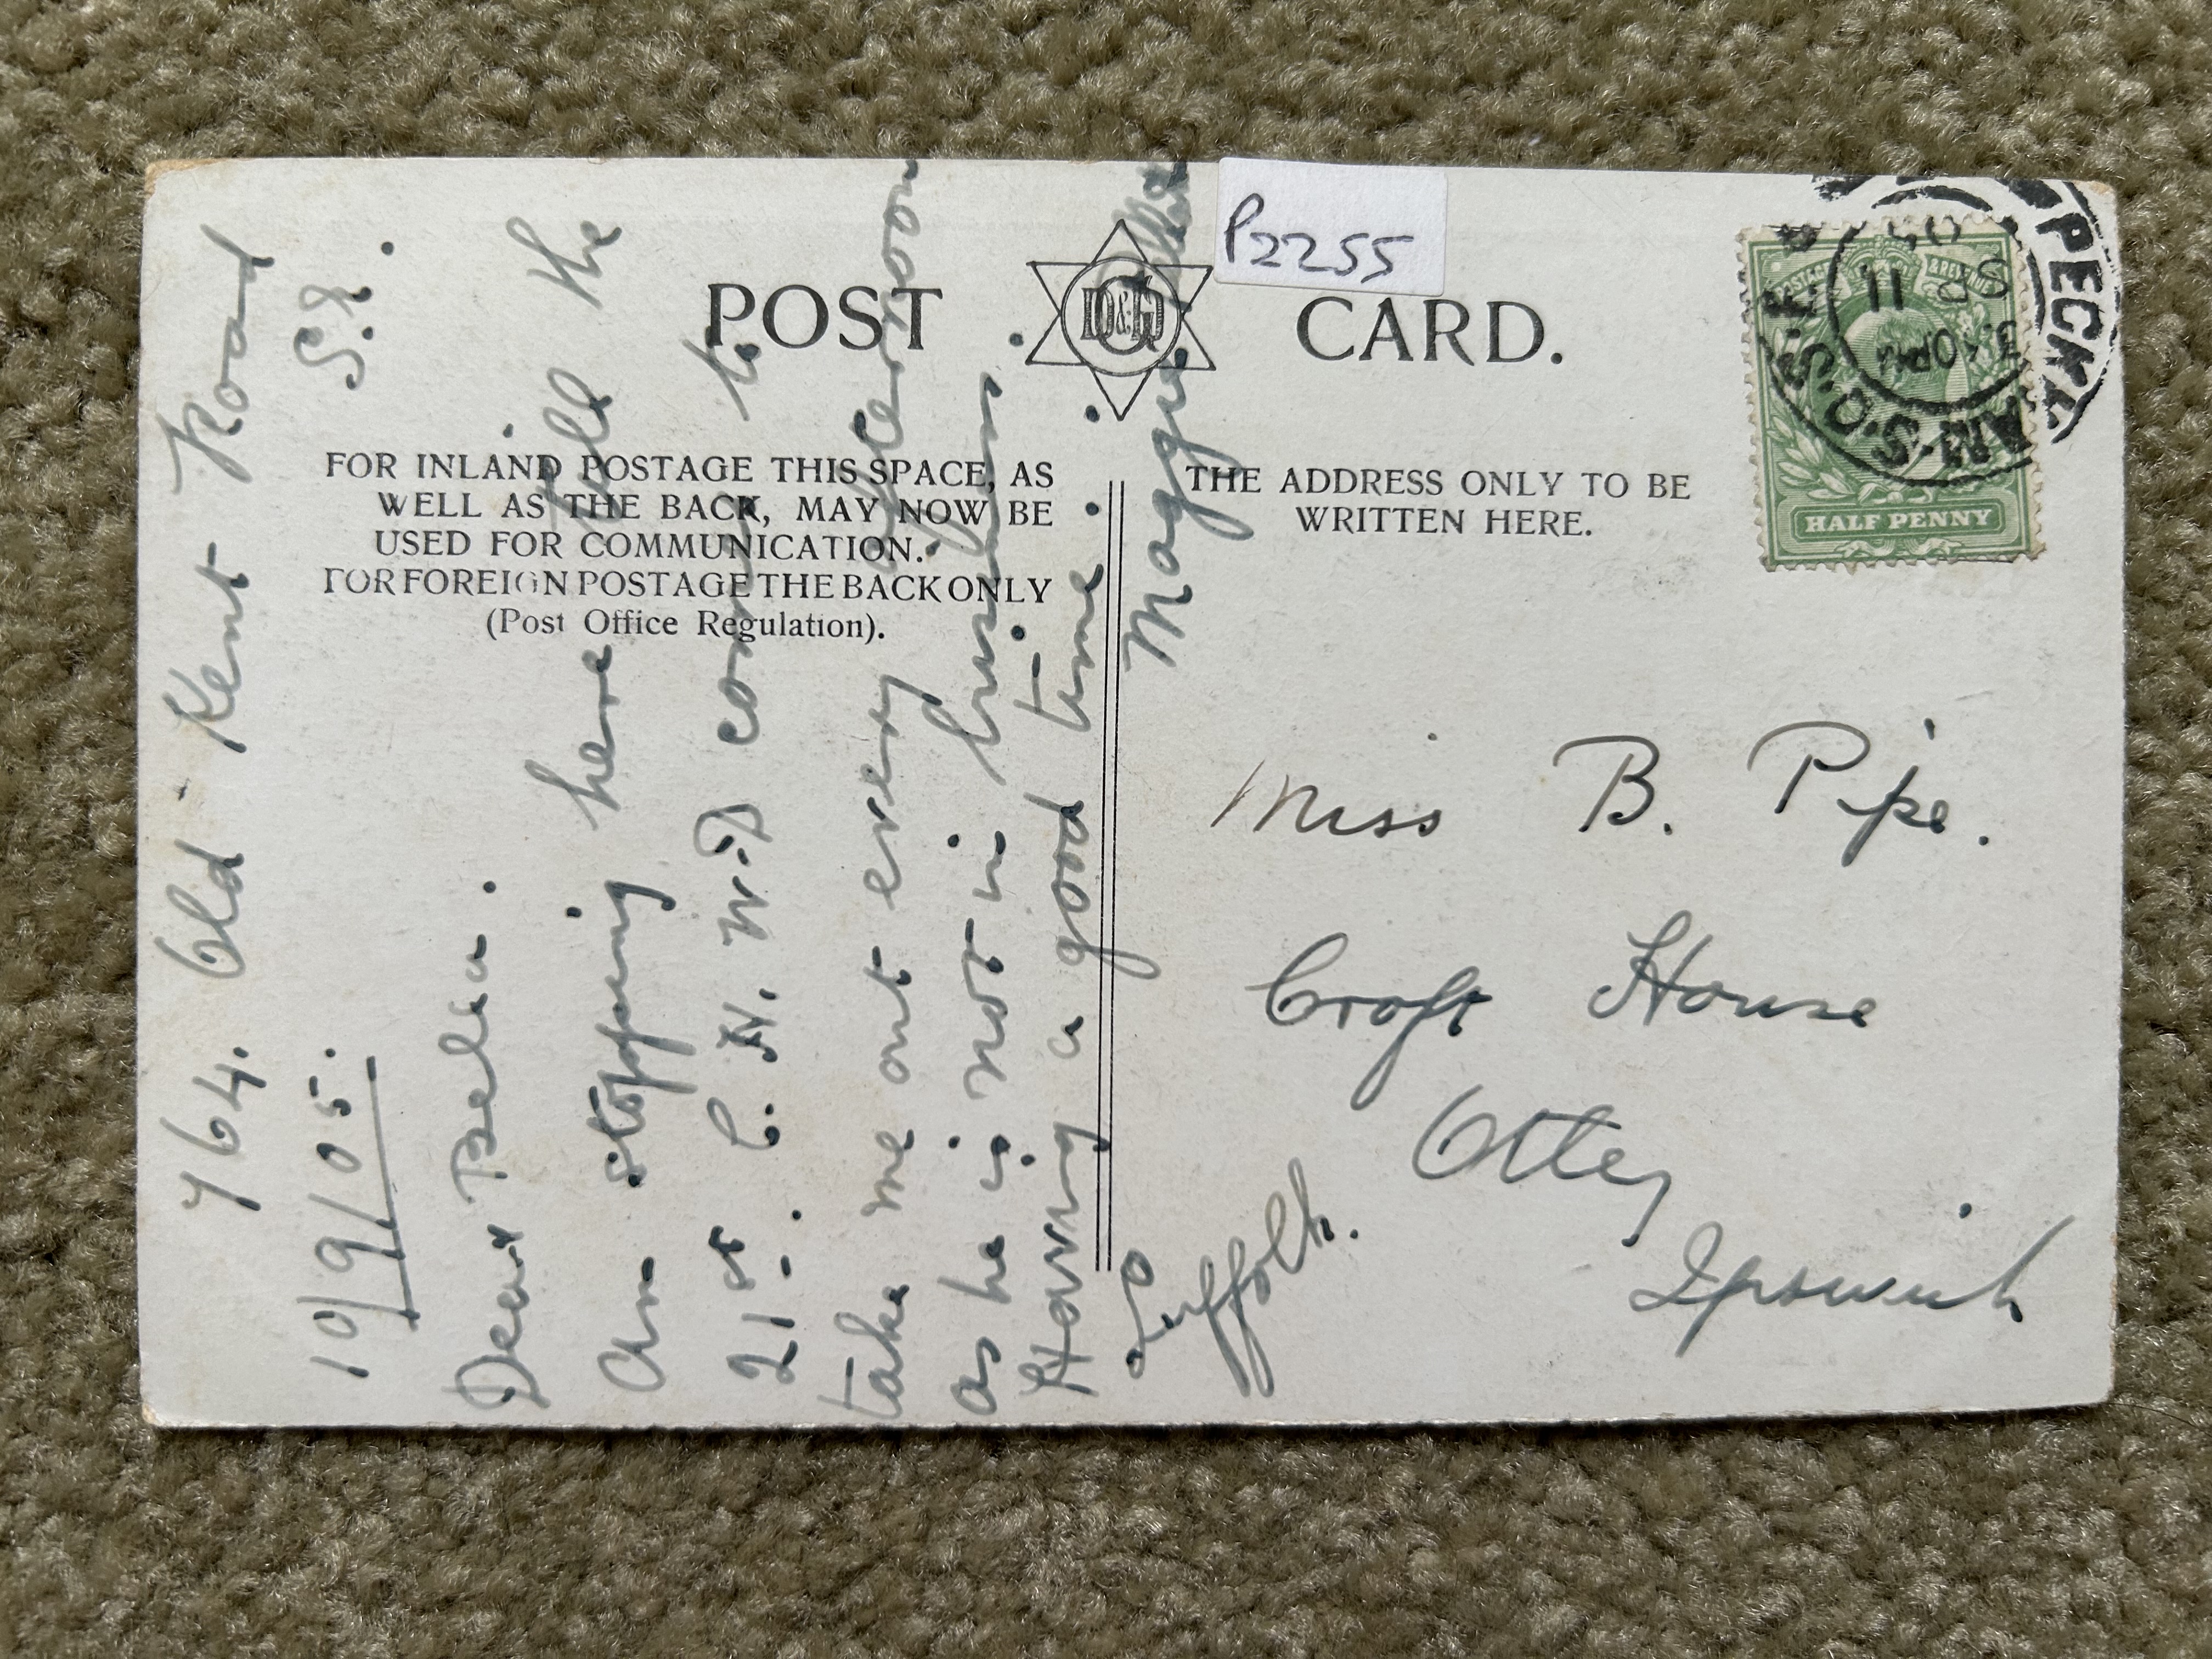 POST CARD.
D&G
P2255
FOR INLAND POSTAGE THIS SPACE, AS
WELL AS THE BACK, MAY NOW BE
USED FOR COMMUNICATION.
FOR FOREIGN POSTAGE THE BACK ONLY
(Post Office Regulation).
THE ADDRESS ONLY TO BE
WRITTEN HERE.
PECKHAM S.O. S.E.
SP 11
05
HALF PENNY
764. Old Kent Road
S.E.
10/9/05.
Dear Belia.
Am stopping here till the
21st. C. H. W. P coming to
take me out every afternoon
as he is not in business.
Having a good time.
Maggie
Miss B. Pipe.
Croft House
Otley
Ipswich
Suffolk.